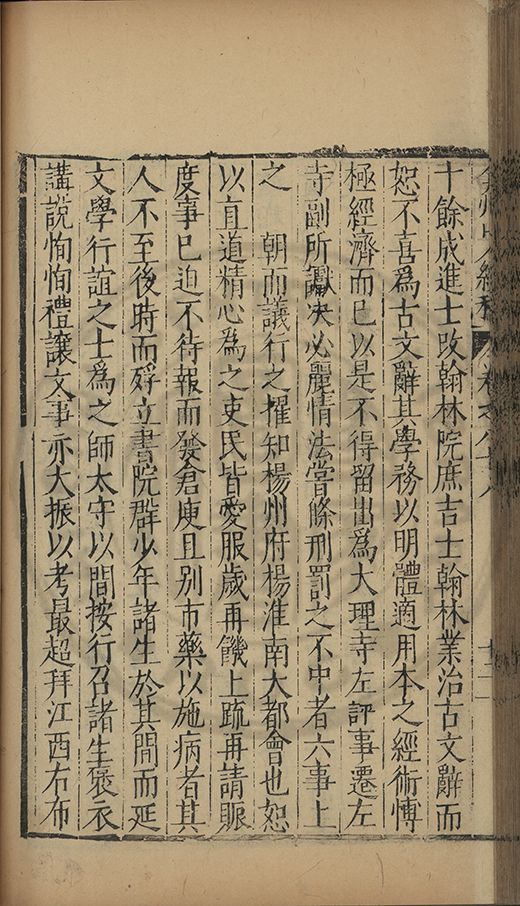 十餘成進士改翰林院庶吉士翰林業治古文辭而
恕不喜為古文辭其學務以明體適用本之經術愽
極經濟而已以是不得留出為大理寺左評事遷左
寺副所讞决必麗情法嘗條刑罰之不中者六事上
之 朝而議行之擢知楊州府楊淮南大都會也恕
以直道精心為之吏民皆愛服歲再饑上疏再請賑
度事已迫不待報而發倉庾且别市藥以施病者其
人不至後時而殍立書院群少年諸生於其間而延
文學行誼之士為之師太守以間按行召諸生褒衣
講說恂恂禮讓文事亦大振以考最超拜江西右布